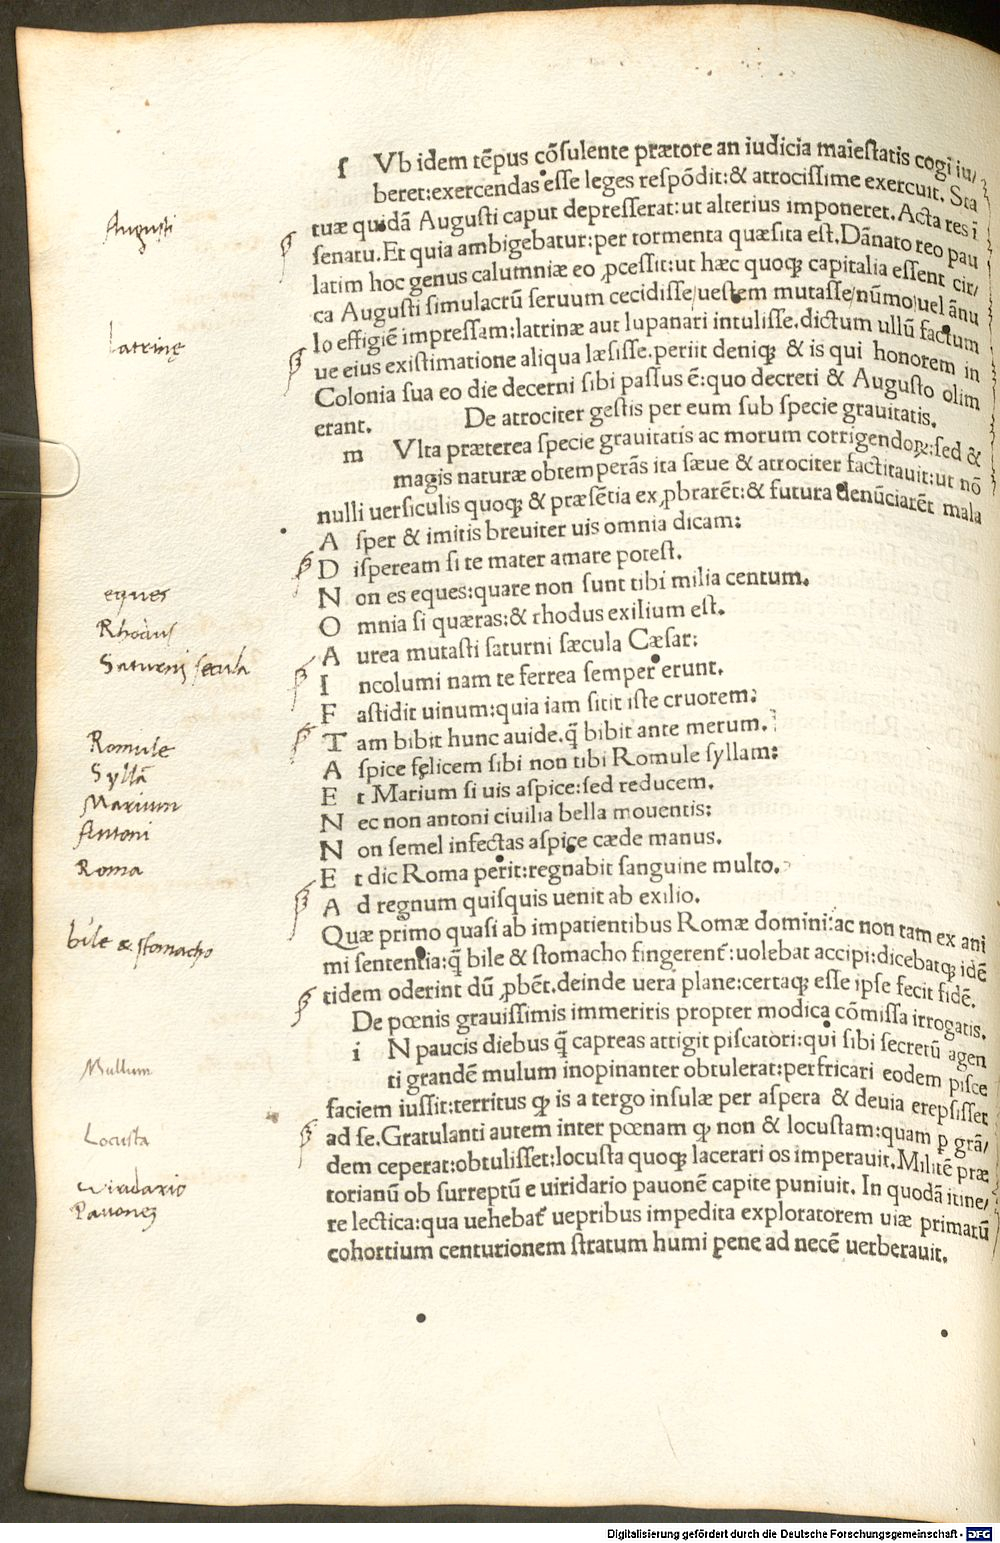 ſ Vb idem tēpus cōſulente prætore an iudicia maieſtatis cogi iu/
beret:exercendas eſſe leges reſpōdit:& atrociſſime exercuit. Sta
Auguſti
tuæ quidā Auguſti caput depreſſerat:ut alterius imponeret. Acta res ī
ſenatu. Et quia ambigebatur:per tormenta quæſita eſt. Dānato reo pau
latim hoc genus calumniæ eo ꝓceſſit:ut hæc quoqꝫ capitalia eſſent cir/
ca Auguſti ſimulacrū ſeruum cecidiſſe/ueſtem mutaſſe/nūmo/uel ānu
latrinę
lo effigiē impreſſam:latrinæ aut lupanari intuliſſe.dictum ullū factum
ue eius exiſtimatione aliqua læſiſſe.periit deniqꝫ & is qui honorem in
Colonia ſua eo die decerni ſibi paſſus ē:quo decreti & Auguſto olim
erant. De atrociter geſtis per eum ſub ſpecie grauitatis.
m Vlta præterea ſpecie grauitatis ac morum corrigendoꝝ:ſed &
magis naturæ obtemperās ita ſæue & atrociter factitauit:ut nō
nulli uerſiculis quoqꝫ & præſētia exꝓbrarēt:& futura denūciarēt mala
A ſper & imitis breuiter uis omnia dicam:
D iſpeream ſi te mater amare poteſt.
eques
N on es eques:quare non ſunt tibi milia centum.
Rhodus
O mnia ſi quæras:& rhodus exilium eſt.
Saturni ſecula
A urea mutaſti ſaturni ſæcula Cæſar:
I ncolumi nam te ferrea ſemper erunt.
F aſtidit uinum:quia iam ſitit iſte cruorem:
T am bibit hunc auide.q̄ bibit ante merum.
Romule
A ſpice fęlicem ſibi non tibi Romule ſyllam:
Syllā
E t Marium ſi uis aſpice:ſed reducem.
Marium
N ec non antoni ciuilia bella mouentis:
Antoni
N on ſemel infectas aſpice cæde manus.
Roma
E t dic Roma perit:regnabit ſanguine multo.
A d regnum quiſquis uenit ab exilio.
Quæ primo quaſi ab impatientibus Romæ domini:ac non tam ex ani
bile & ſtomacho
mi ſententia:q̄ bile & ſtomacho fingerent᷑:uolebat accipi:dicebatqꝫ idē
tidem oderint dū ꝓbēt.deinde uera plane:certaqꝫ eſſe ipſe fecit fidē.
De pœnis grauiſſimis immeritis propter modica cōmiſſa irrogatis.
i N paucis diebus q̄ capreas attigit piſcatori:qui ſibi ſecretū agen
Mullum
ti grandē mulum inopinanter obtulerat:perfricari eodem piſce
faciem iuſſit:territus ꝙ is a tergo inſulæ per aſpera & deuia erepſiſſet
Locuſta
ad ſe. Gratulanti autem inter pœnam ꝙ non & locuſtam:quam p grā/
dem ceperat:obtuliſſet:locuſta quoqꝫ lacerari os imperauit. Militē præ
Virdario
torianū ob ſurreptū e uiridario pauonē capite puniuit. In quodā itine/
Pauonez
re lectica:qua uehebat᷑ uepribus impedita exploratorem uiæ primarū
cohortium centurionem ſtratum humi pene ad necē uerberauit.
Digitalisierung gefördert durch die Deutsche Forschungsgemeinschaft - DFG